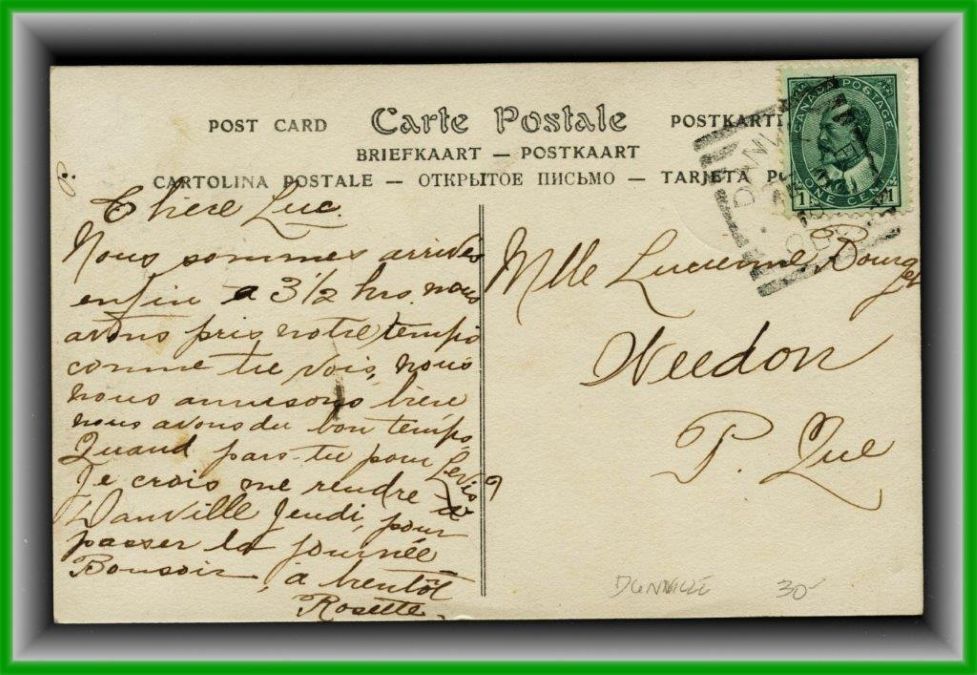 POST CARD Carte Postale POSTKARTE
BRIEFKAART — POSTKAART
CARTOLINA POSTALE — ОТКРЫТОЕ ПИСЬМО — TARJETA PO
CANADA POSTAGE
1 ONE CENT 1
Chère Luc.
Nous sommes arrivés
enfin a 3 1/2 hrs. nous
avons pris notre temps
comme tu vois, nous
nous amusons bien
nous avons du bon temps.
Quand pars-tu pour Levis?
Je crois me rendre à
Danville Jeudi, pour
passer la journée
Bonsoir, à bientôt
Rosette.
Mlle Lucienne Bourget
Weedon
P. Que
30